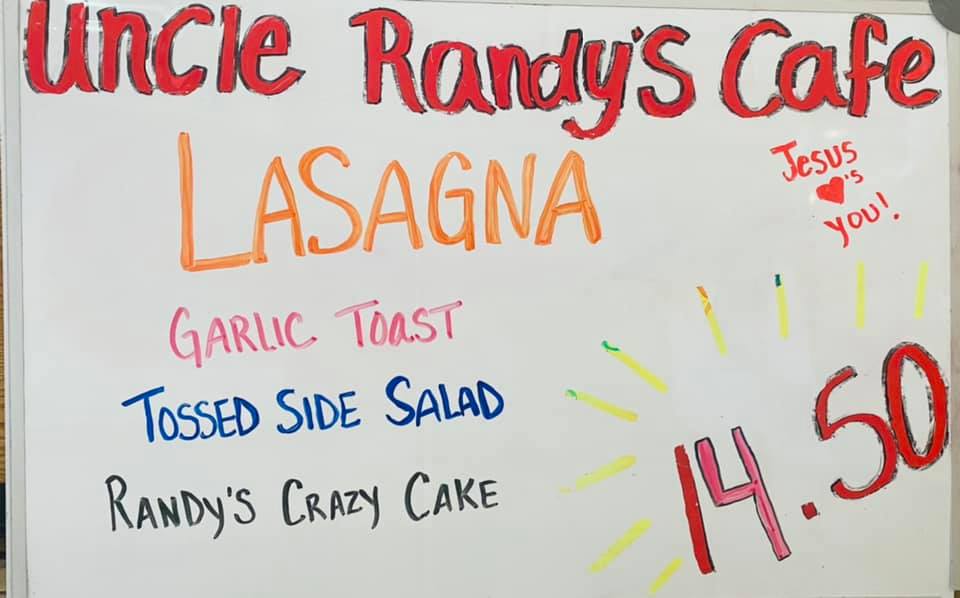 Uncle Randy's Cafe
LASAGNA
Jesus
♥'s
you!
GARLIC TOAST
TOSSED SIDE SALAD
RANDY'S CRAZY CAKE
14.50